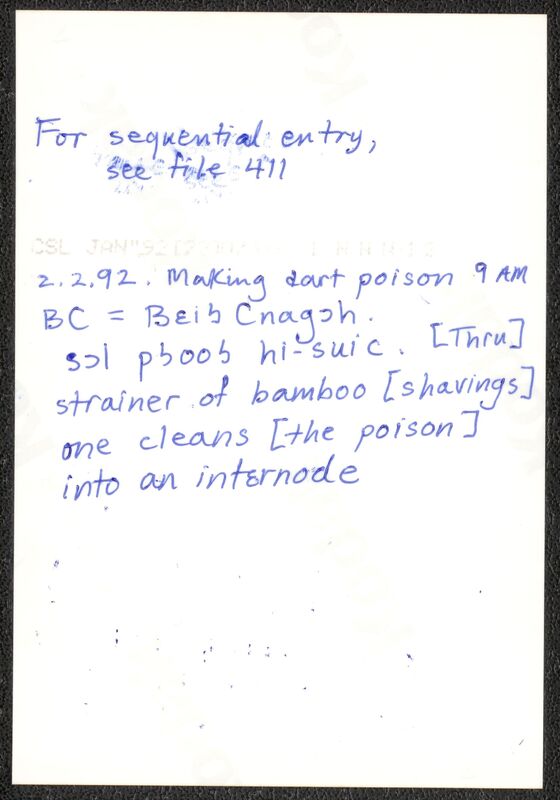 For sequential entry,
see file 411
2.2.92. Making dart poison 9 AM
BC = Bɛib Cnagɔh.
sɔl pboob hi-suic. [Thru]
strainer of bamboo [shavings]
one cleans [the poison]
into an internode